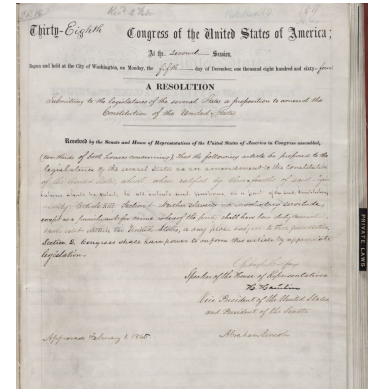 Thirty-Eighth Congress of the United States of America;
At the second Session,
Begun and held at the City of Washington, on Monday, the fifth day of December, one thousand eight hundred and sixty-four
A RESOLUTION
Submitting to the legislatures of the several States a proposition to amend the
Constitution of the United States
Resolved by the Senate and House of Representatives of the United States of America in Congress assembled,
(two thirds of both houses concurring) that the following article be proposed to the
legislatures of the several States as an amendment to the Constitution
of the United States, which, when ratified by three-fourths of said
Legislatures, shall be valid, to all intents and purposes, as a part of the said Constitution,
namely: Article XIII. Section 1. Neither slavery nor involuntary servitude,
except as a punishment for crime whereof the party shall have been duly convicted,
shall exist within the United States, or any place subject to their jurisdiction.
Section 2. Congress shall have power to enforce this article by appropriate
legislation.
Speaker of the House of Representatives
H. Hamlin
Vice President of the United States
and President of the Senate
Approved February 1. 1865.
Abraham Lincoln
PRIVATE LAWS